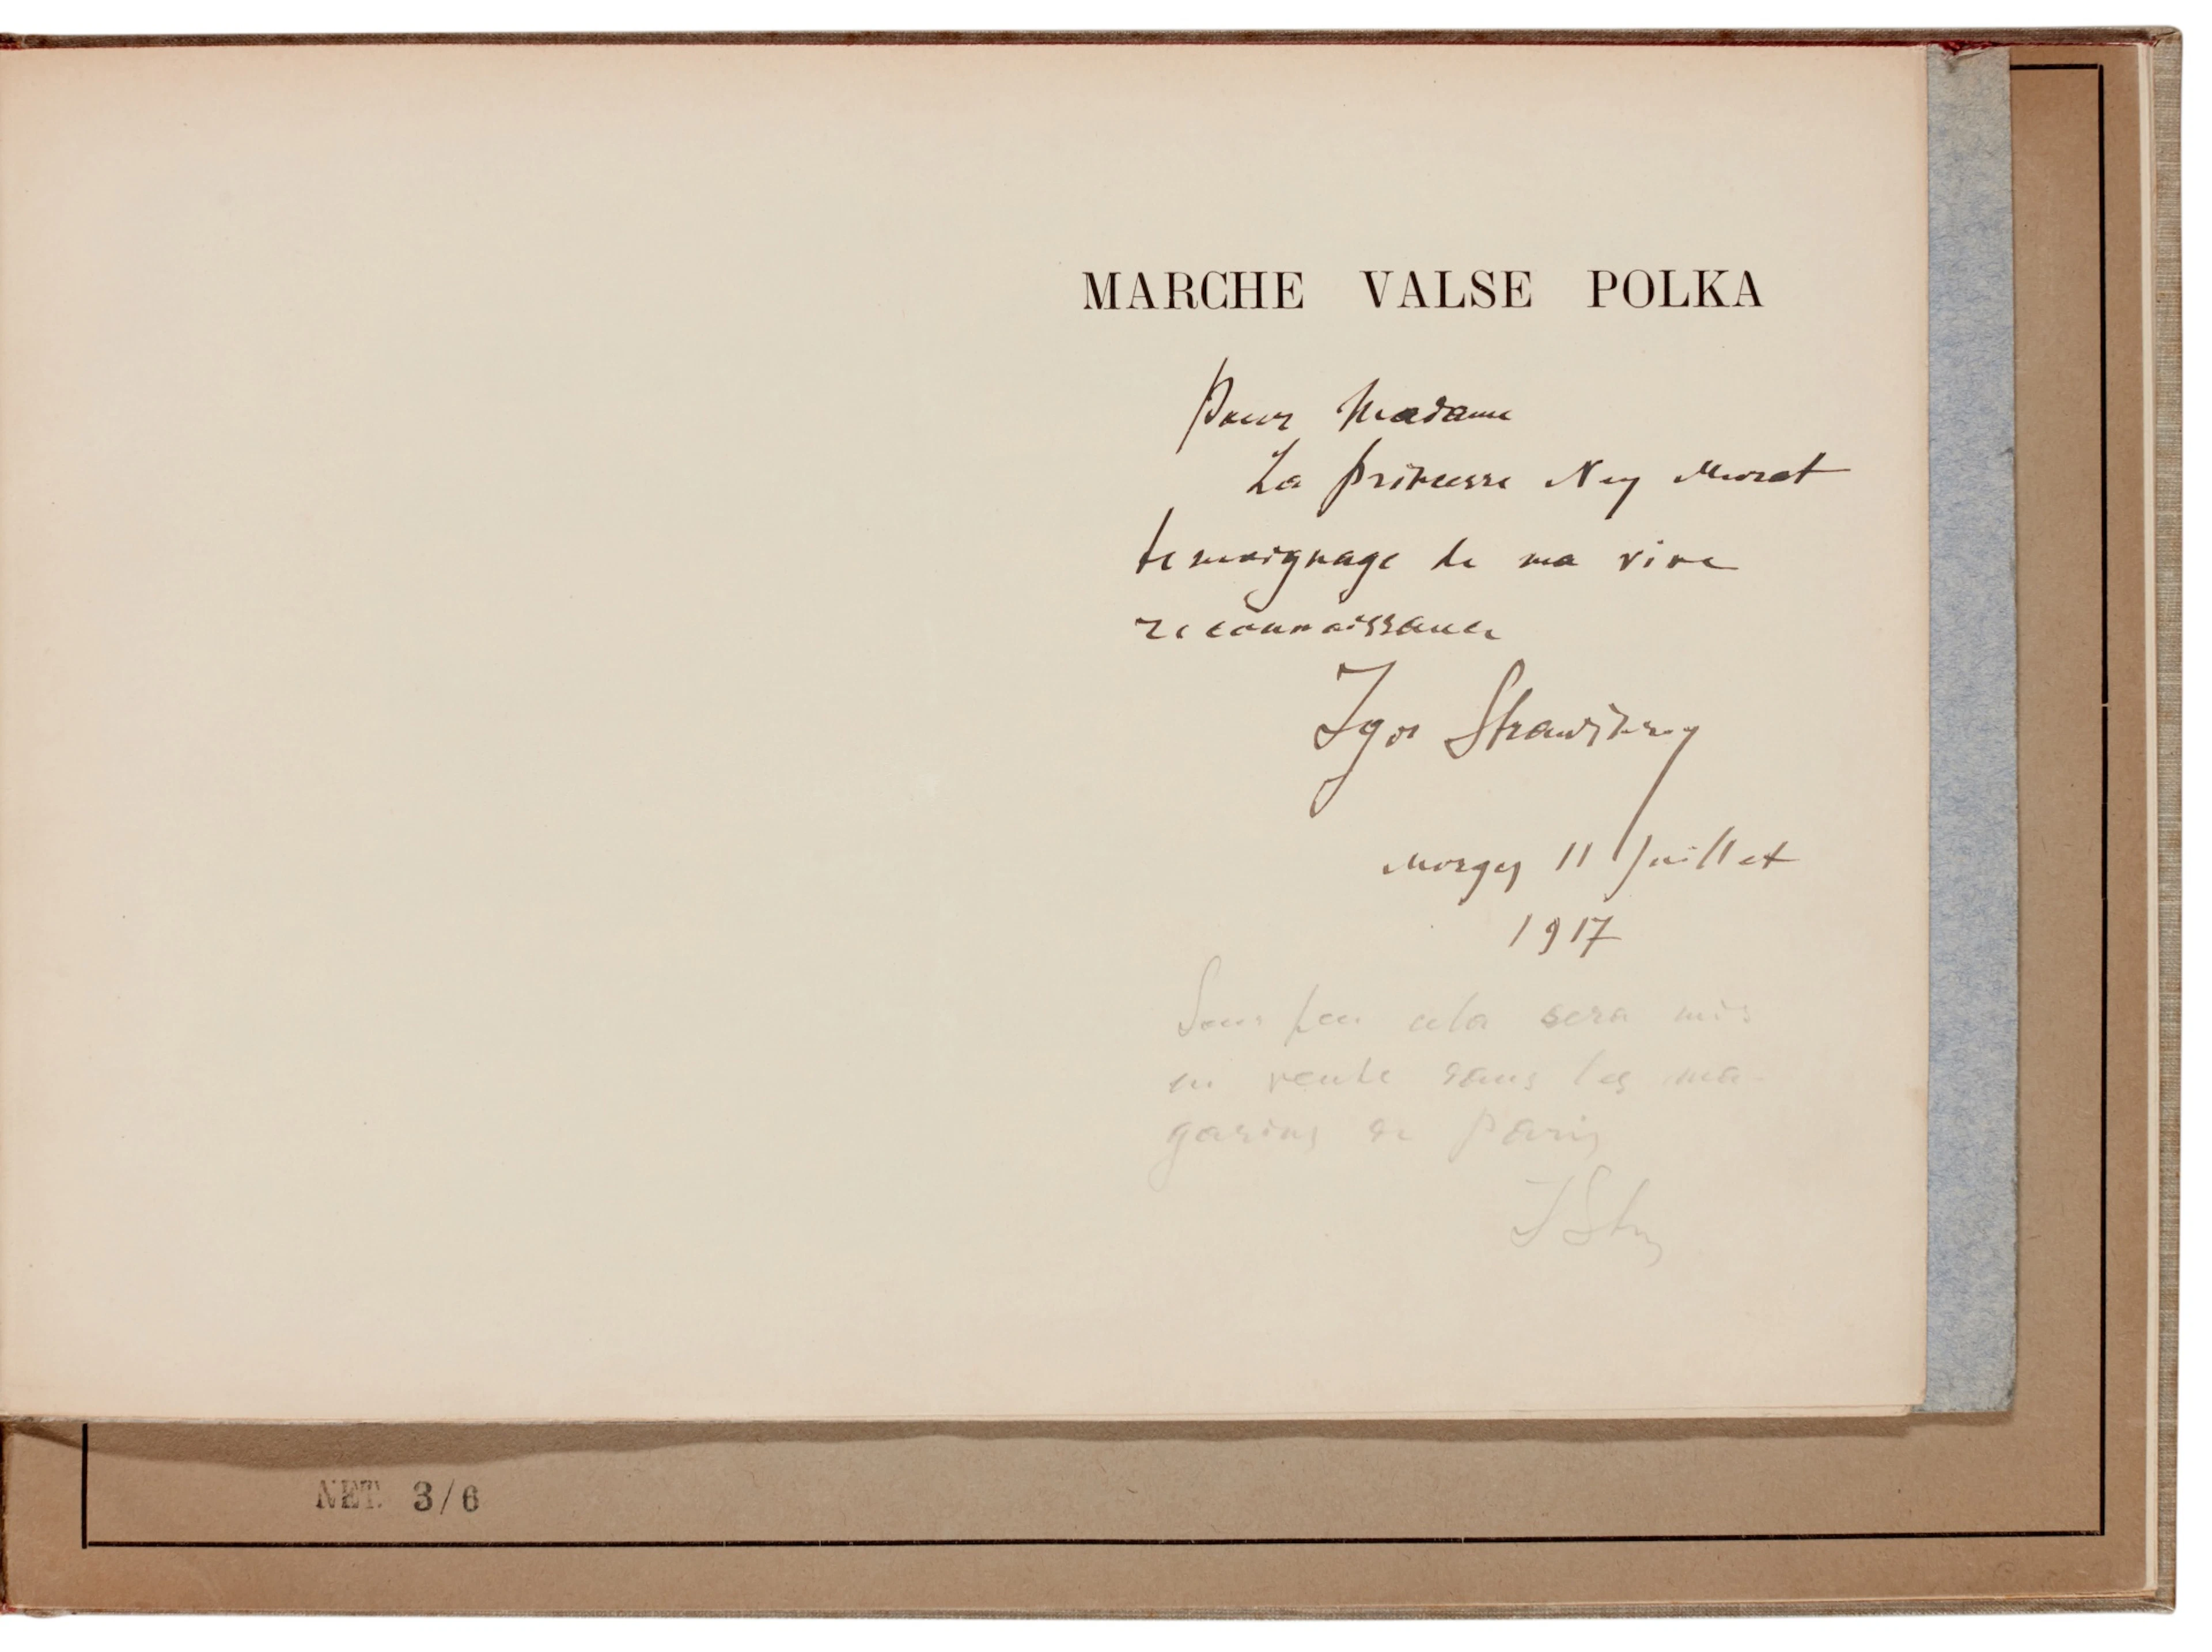 MARCHE VALSE POLKA
Pour Madame
La princesse Ney Murat
temoignage de ma vive
reconnaissance
Igor Strawinsky
Morges 11 Juillet
1917
Sous peu cela sera mis
en vente dans les ma-
gasins de Paris
I Str
NET. 3/6